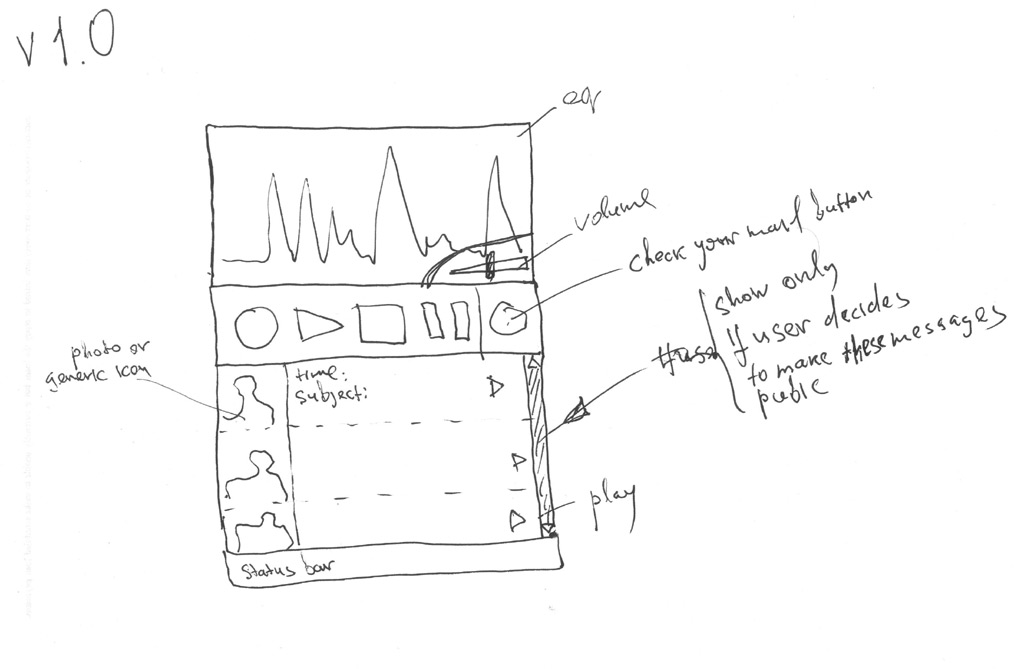 v 1.0
eq
volume
check your mail button
show only
if user decides
to make these messages
public
photo or
generic icon
time:
subject:
play
status bar